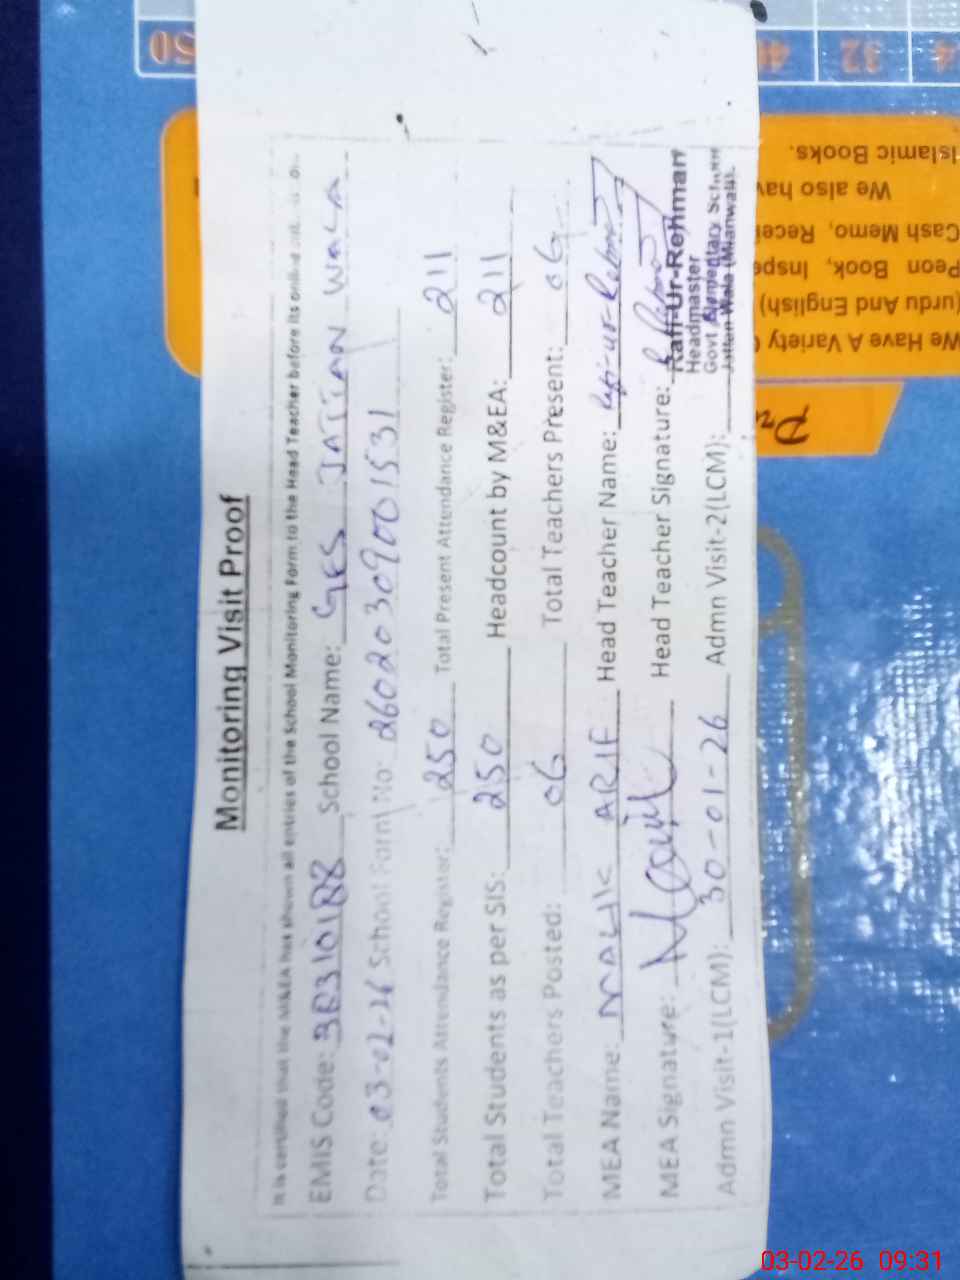 Monitoring Visit Proof
It is certified that the M&EA has shown all entries of the School Monitoring Form to the Head Teacher before its online
EMIS Code: 38310188 School Name: GES JATTAN WALA
Date: 03-02-26 School Form No: 26020309001531
Total Students Attendance Register: 250 Total Present Attendance Register: 211
Total Students as per SIS: 250 Headcount by M&EA: 211
Total Teachers Posted: 06 Total Teachers Present: 06
MEA Name: MALIK ARIF Head Teacher Name: Rafi-ur-Rehman
MEA Signature: Head Teacher Signature:
Rafi-Ur-Rehman
Headmaster
Govt. Elementary School
Jattan Wala (Mianwali).
Admn Visit-1(LCM): 30-01-26 Admn Visit-2(LCM):
We Have A Variety
(urdu And English)
Peon Book, Inspe
Cash Memo, Recei
We also hav
Islamic Books.
50
32
03-02-26 09:31